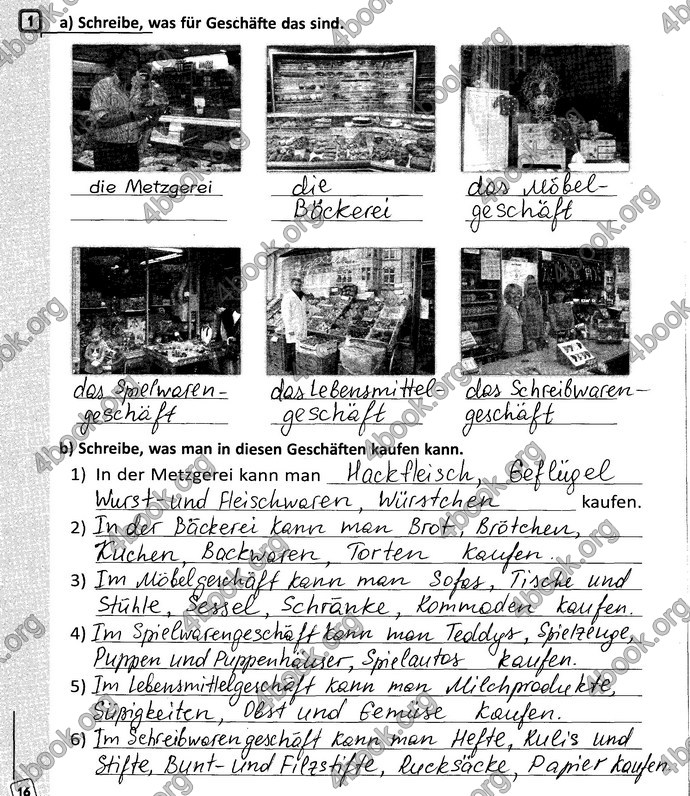 1 a) Schreibe, was für Geschäfte das sind.
die Metzgerei
die
Bäckerei
das Möbel-
geschäft
das Spielwaren-
geschäft
das Lebensmittel-
geschäft
das Schreibwaren-
geschäft
b) Schreibe, was man in diesen Geschäften kaufen kann.
1) In der Metzgerei kann man Hackfleisch, Geflügel
Wurst- und Fleischwaren, Würstchen kaufen.
2) In der Bäckerei kann man Brot, Brötchen,
Kuchen, Backwaren, Torten kaufen.
3) Im Möbelgeschäft kann man Sofas, Tische und
Stühle, Sessel, Schränke, Kommoden kaufen.
4) Im Spielwarengeschäft kann man Teddys, Spielzeuge,
Puppen und Puppenhäuser, Spielautos kaufen.
5) Im Lebensmittelgeschäft kann man Milchprodukte,
Süßigkeiten, Obst und Gemüse kaufen.
6) Im Schreibwarengeschäft kann man Hefte, Kulis und
Stifte, Bunt- und Filzstifte, Rucksäcke, Papier kaufen
16
4book.org